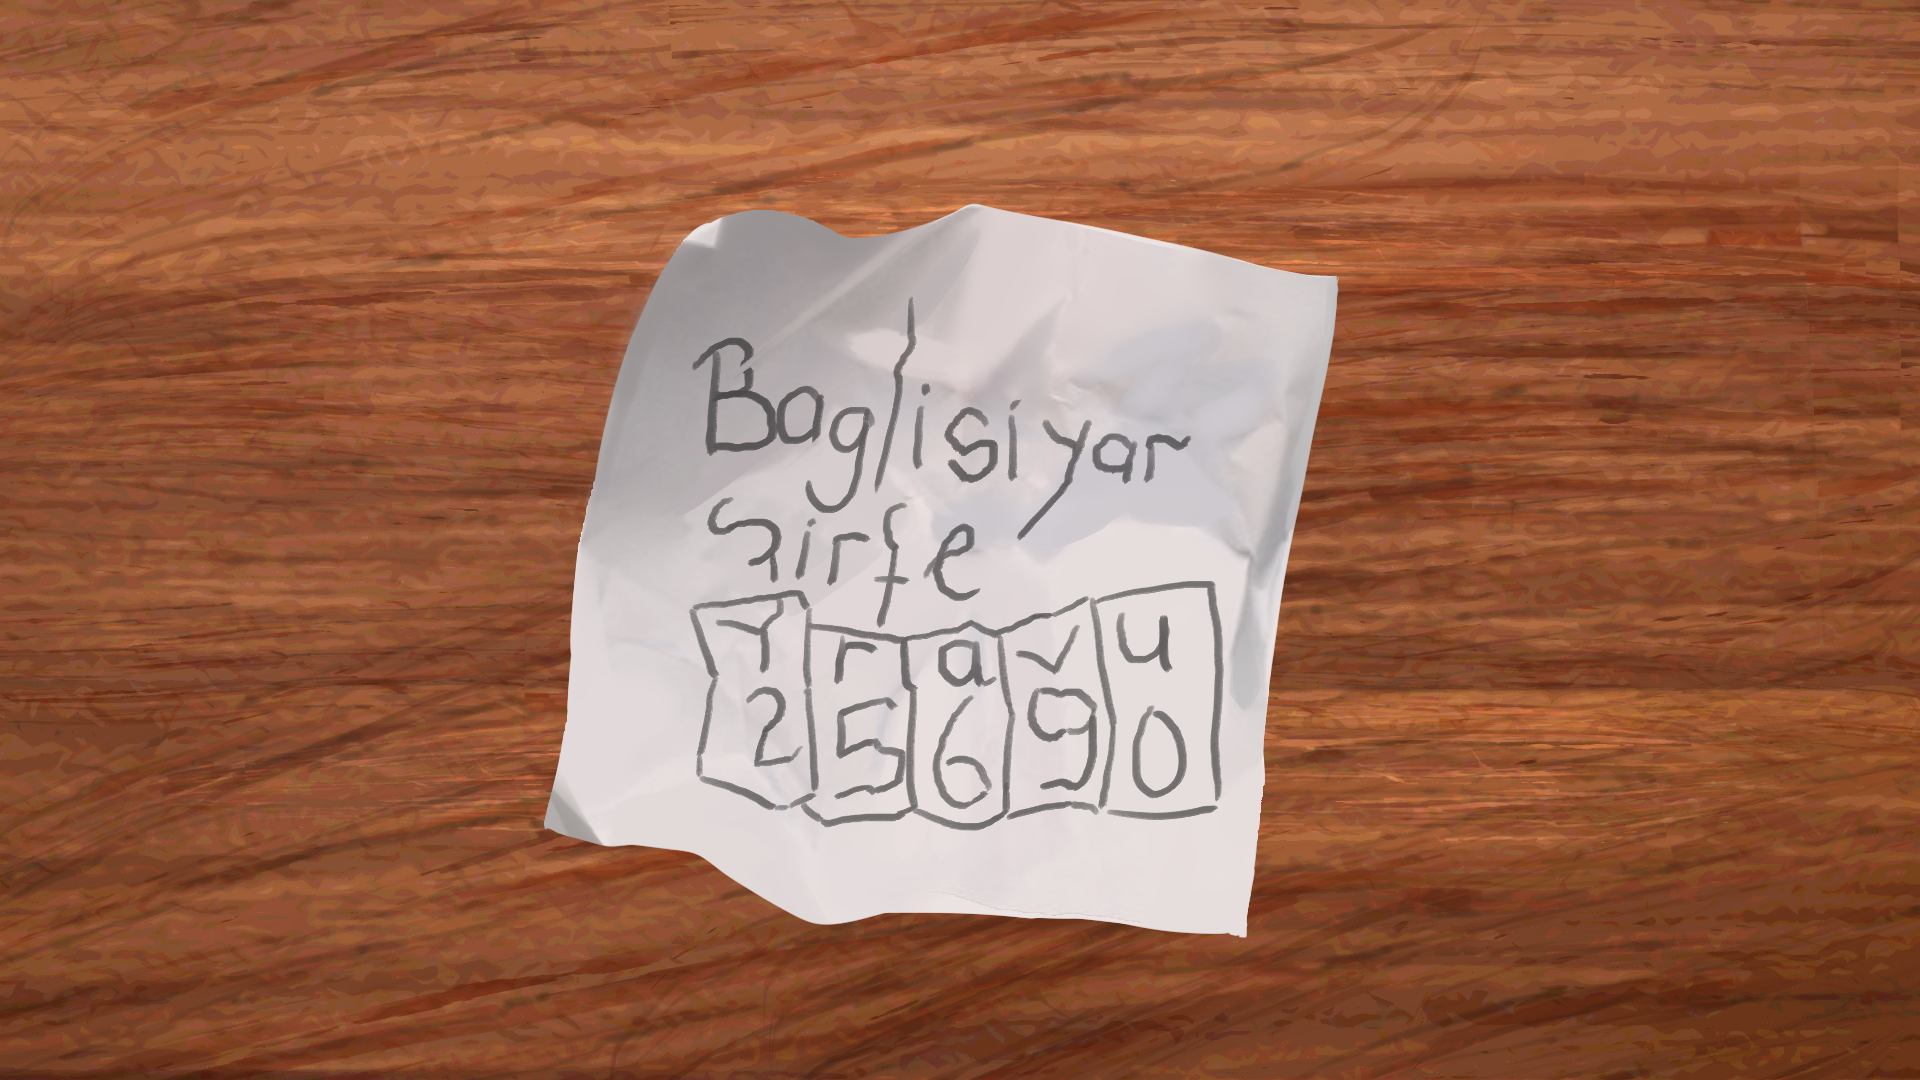 Baglisiyar
Sirfe
Y r a v u
2 5 6 9 0